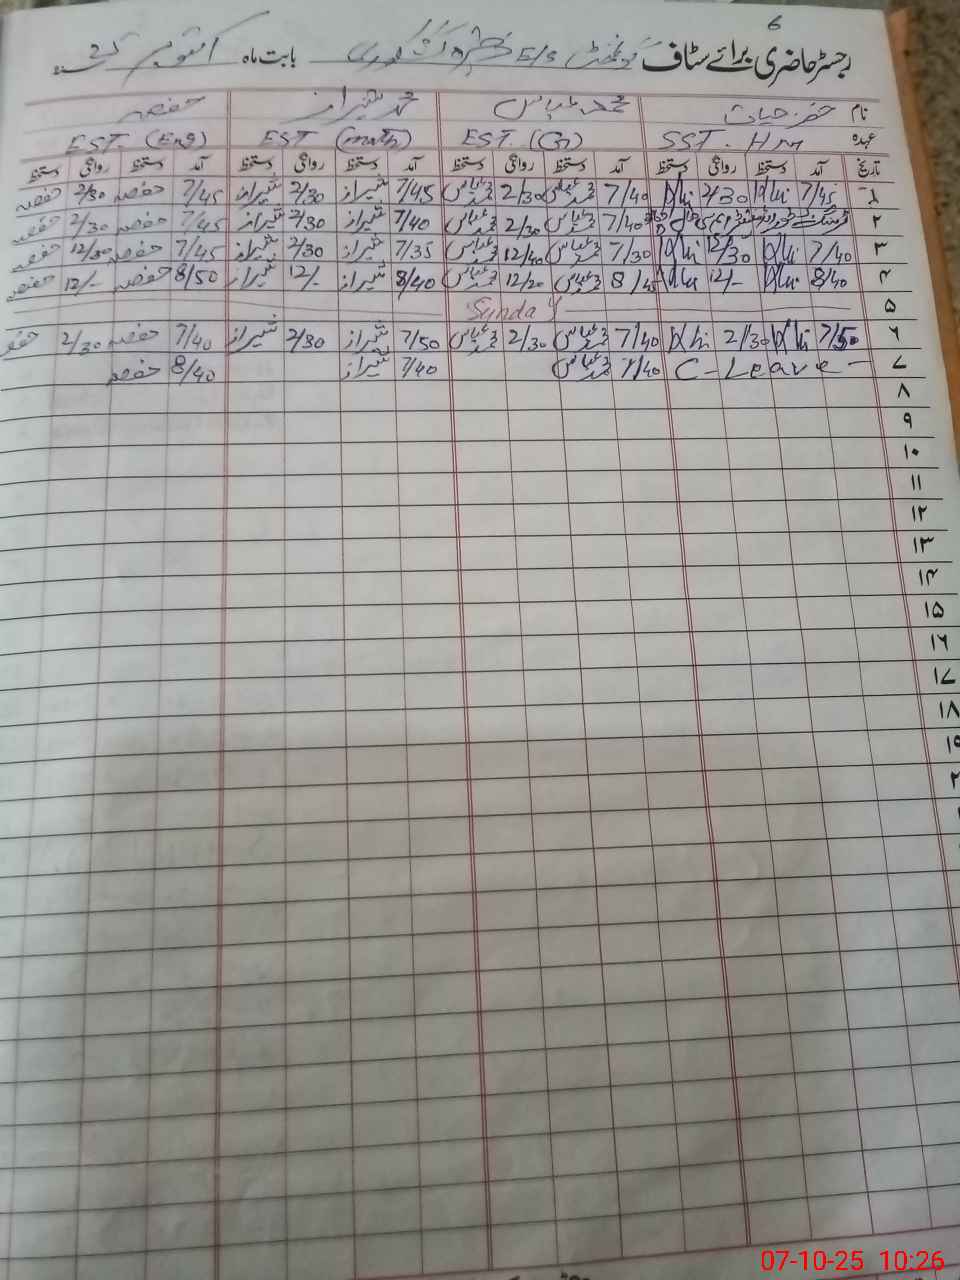 6
رجسٹر حاضری برائے سٹاف E/S بابت ماہ اکتوبر 25
نام خضر حیات محمد عباس محمد شیراز حفصہ
عہدہ SST. Hm EST. EST (math) EST. (Eng)
تاریخ آمد دستخط روانگی دستخط آمد دستخط روانگی دستخط آمد دستخط روانگی دستخط آمد دستخط روانگی دستخط
۱ 7/45 2/30 7/40 محمد عباس 2/30 محمد عباس 7/45 شیراز 2/30 شیراز 7/45 حفصہ 2/30 حفصہ
۲ 7/40 محمد عباس 2/30 محمد عباس 7/40 شیراز 2/30 شیراز 7/45 حفصہ 2/30 حفصہ
۳ 7/40 12/30 7/30 محمد عباس 12/40 محمد عباس 7/35 شیراز 2/30 شیراز 7/45 حفصہ 12/30 حفصہ
۴ 8/40 12/- 8/45 محمد عباس 12/20 محمد عباس 8/40 شیراز 12/- شیراز 8/50 حفصہ 12/- حفصہ
۵ Sunday
۶ 7/50 2/30 7/40 محمد عباس 2/30 محمد عباس 7/50 شیراز 2/30 شیراز 7/40 حفصہ 2/30 حفصہ
۷ C-Leave- 7/40 محمد عباس 7/40 شیراز 8/40 حفصہ
۸
۹
۱۰
۱۱
۱۲
۱۳
۱۴
۱۵
۱۶
۱۷
۱۸
07-10-25 10:26